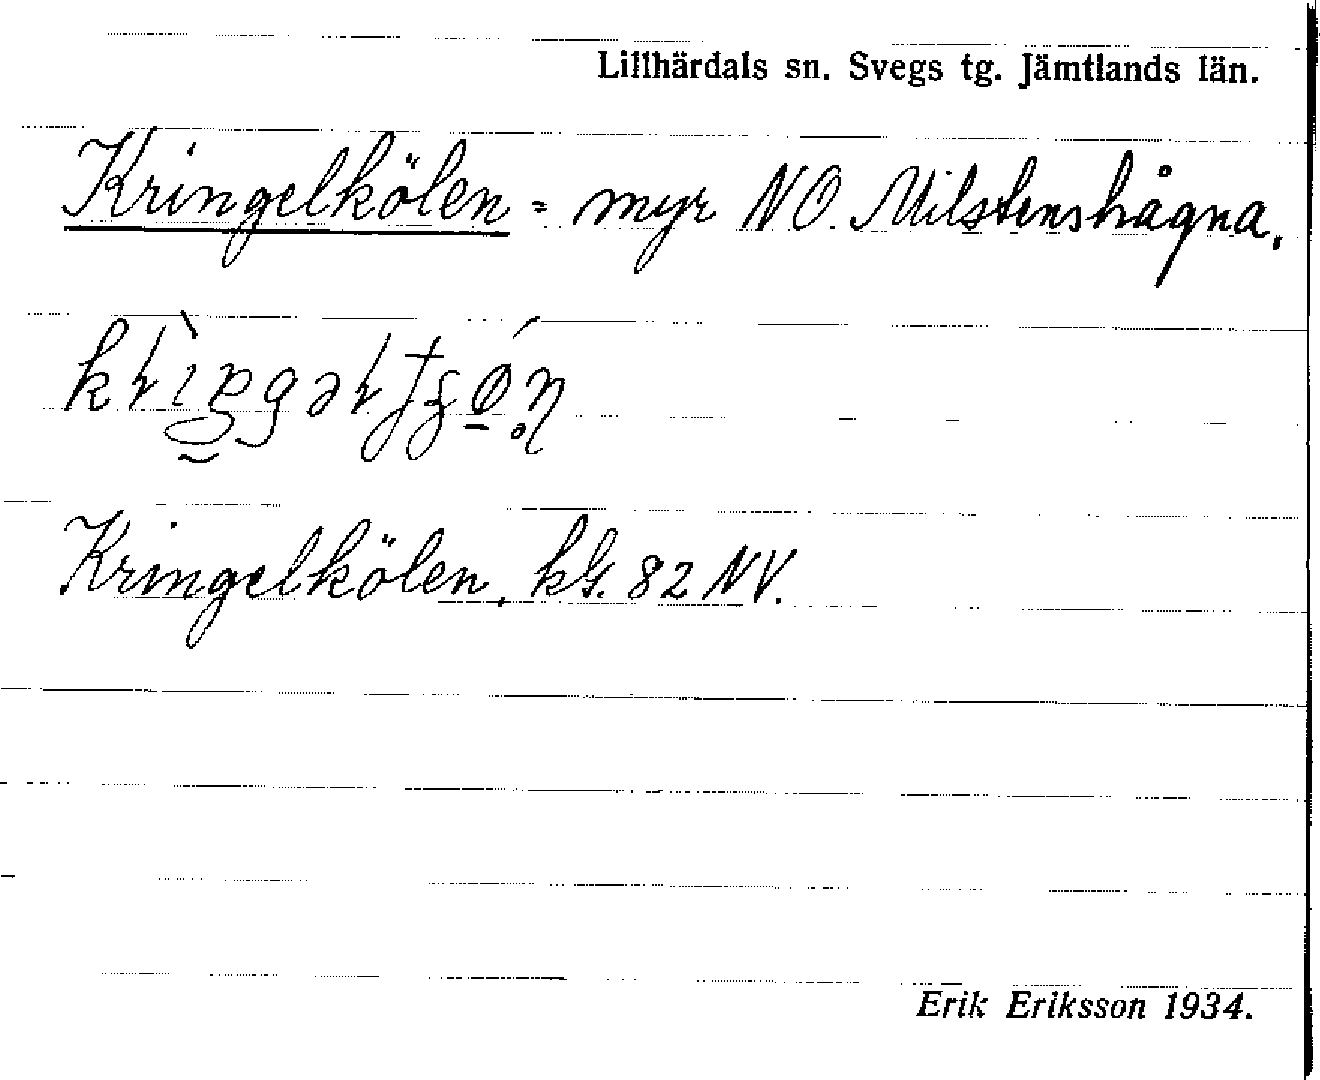 Lillhärdals sn. Svegs tg. Jämtlands län.
Kringelkölen = myr NO. Milstenshågna.
Kringelkölen, kbl. 82 NV.
Erik Eriksson 1934.